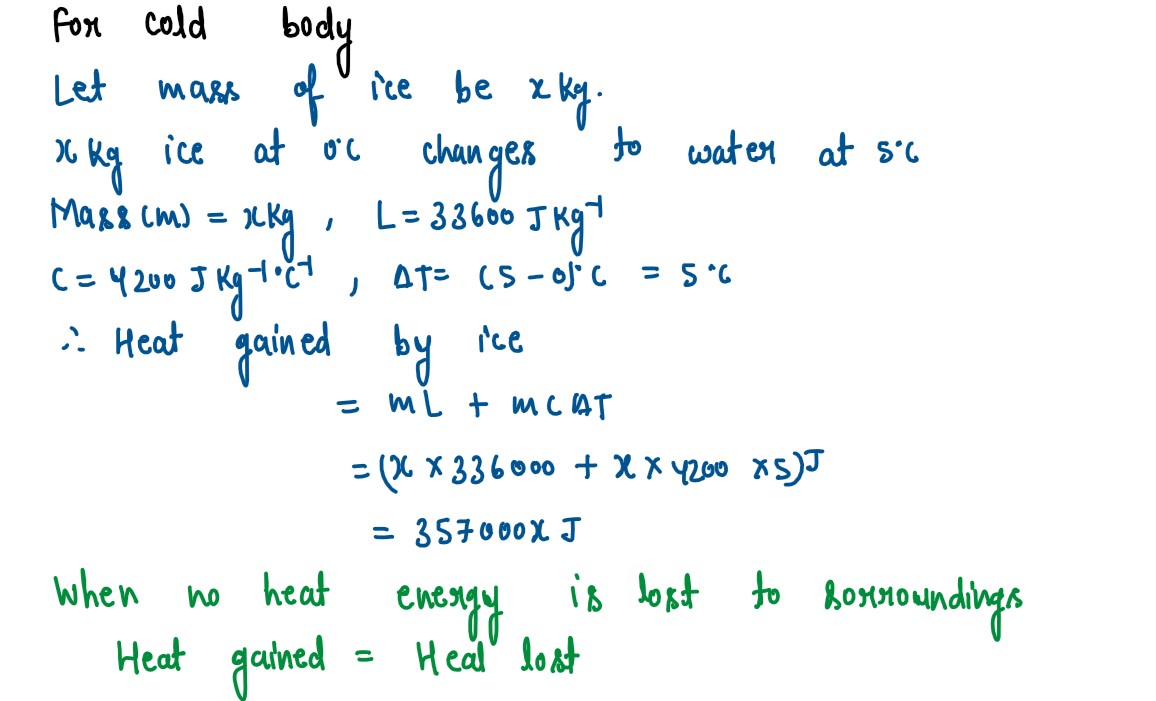 For cold body
Let mass of ice be x kg.
x kg ice at 0°C changes to water at 5°C
Mass (m) = x Kg , L = 33600 J Kg⁻¹
C = 4200 J Kg⁻¹°C⁻¹ , ΔT = (5 - 0)°C = 5 °C
∴ Heat gained by ice
= mL + mCΔT
= (x × 336000 + x × 4200 × 5) J
= 357000x J
When no heat energy is lost to sorroundings
Heat gained = Heal lost